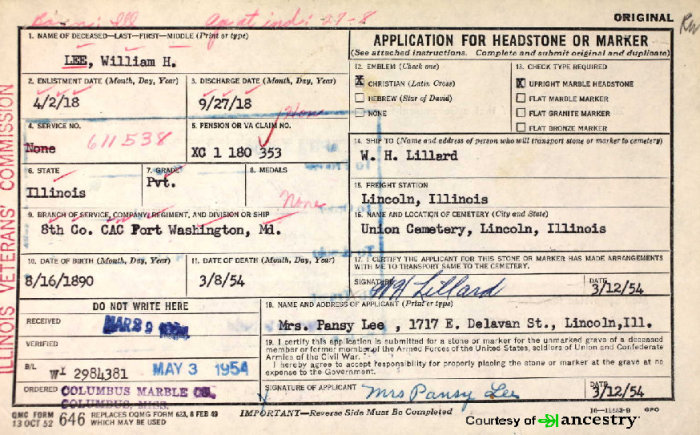 ORIGINAL
ILLINOIS VETERANS' COMMISSION
1. NAME OF DECEASED—LAST—FIRST—MIDDLE (Print or type)
LEE, William H.
2. ENLISTMENT DATE (Month, Day, Year)
4/2/18
3. DISCHARGE DATE (Month, Day, Year)
9/27/18
4. SERVICE NO.
None 611538
5. PENSION OR VA CLAIM NO.
None
XC 1 180 353
6. STATE
Illinois
7. GRADE
Pvt.
8. MEDALS
None
9. BRANCH OF SERVICE, COMPANY, REGIMENT, AND DIVISION OR SHIP
8th Co. CAC Fort Washington, Md.
10. DATE OF BIRTH (Month, Day, Year)
8/16/1890
11. DATE OF DEATH (Month, Day, Year)
3/8/54
APPLICATION FOR HEADSTONE OR MARKER
(See attached instructions. Complete and submit original and duplicate)
12. EMBLEM (Check one)
X CHRISTIAN (Latin Cross)
HEBREW (Star of David)
NONE
13. CHECK TYPE REQUIRED
X UPRIGHT MARBLE HEADSTONE
FLAT MARBLE MARKER
FLAT GRANITE MARKER
FLAT BRONZE MARKER
14. SHIP TO (Name and address of person who will transport stone or marker to cemetery)
W. H. Lillard
15. FREIGHT STATION
Lincoln, Illinois
16. NAME AND LOCATION OF CEMETERY (City and State)
Union Cemetery, Lincoln, Illinois
17. I CERTIFY THE APPLICANT FOR THIS STONE OR MARKER HAS MADE ARRANGEMENTS
WITH ME TO TRANSPORT SAME TO THE CEMETERY.
SIGNATURE WH Lillard
DATE
3/12/54
DO NOT WRITE HERE
RECEIVED
MAR 29 1954
VERIFIED
B/L
WI 2984381 MAY 3 1954
ORDERED COLUMBUS MARBLE CO.
COLUMBUS, MISS.
18. NAME AND ADDRESS OF APPLICANT (Print or type)
Mrs. Pansy Lee , 1717 E. Delavan St., Lincoln,Ill.
19. I certify this application is submitted for a stone or marker for the unmarked grave of a deceased
member or former member of the Armed Forces of the United States, soldiers of Union and Confederate
Armies of the Civil War.
I hereby agree to accept responsibility for properly placing the stone or marker at the grave at no
expense to the Government.
SIGNATURE OF APPLICANT Mrs Pansy Lee
DATE
3/12/54
QMC FORM
13 OCT 52 646 REPLACES OQMG FORM 623, 8 FEB 49
WHICH MAY BE USED
IMPORTANT—Reverse Side Must Be Completed
GPO
Courtesy of ancestry